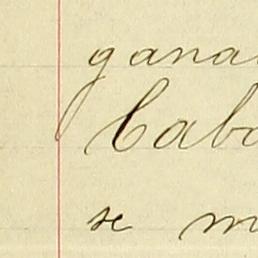 gana
Cabo
se m